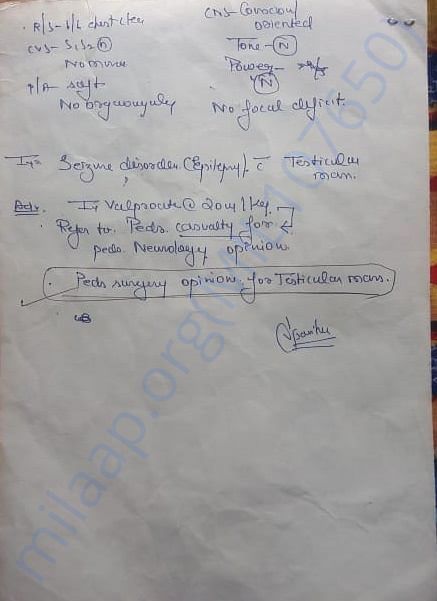 R/S - B/L chest clear
CVS - S1S2 (N)
No murmur
P/A - soft
No organomegaly
CNS - Conscious/
oriented
Tone - (N)
Power -
(N)
No focal deficit.
Seizure disorder (Epilepsy) c̄ Testicular
mass.
Adv.
Inj Valproate @ 20ml/kg.
Refer to Peds casualty for
peds. Neurology opinion.
Peds surgery opinion for Testicular mass.
milaap.org